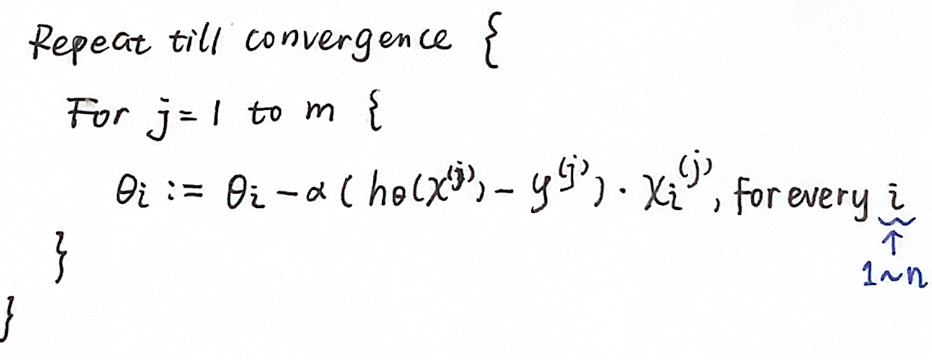 Repeat till convergence {
For j = 1 to m {
θi := θi − α (hθ(x^(j)) − y^(j)) · xi^(j), for every i
↑
1~n
}
}